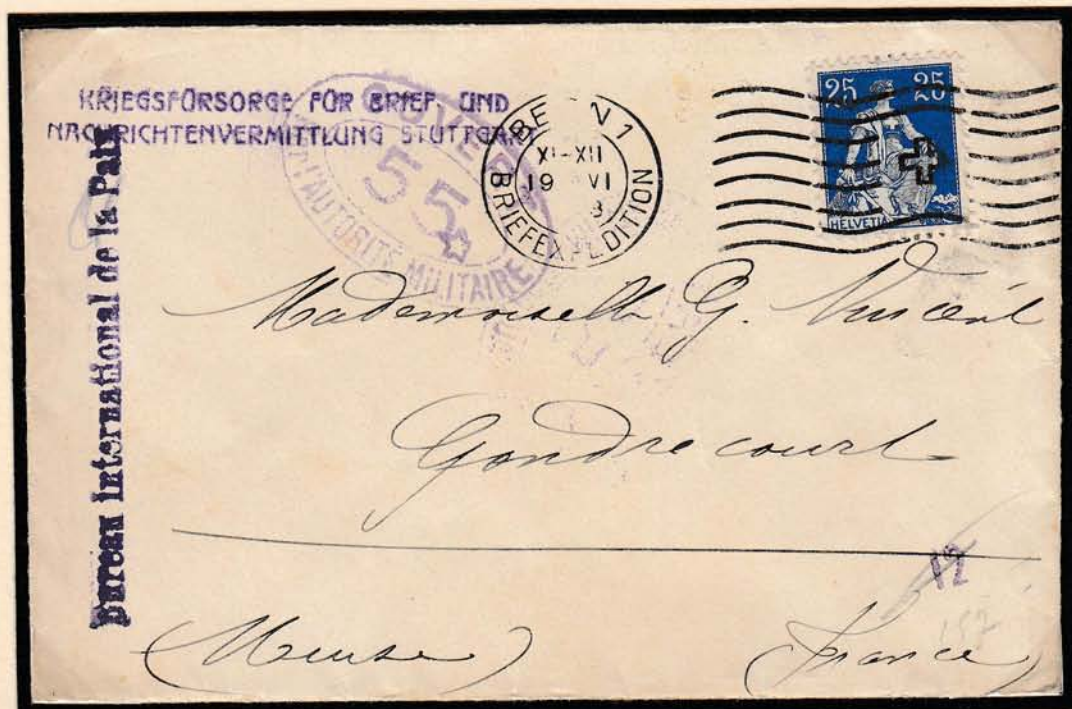 KRIEGSFÜRSORGE FÜR BRIEF- UND
NACHRICHTENVERMITTLUNG STUTTGART
Bureau International de la Paix
OUVERT
55
L'AUTORITÉ MILITAIRE
BERN 1
XI-XII
19 VI
8
BRIEFEXPEDITION
25 25
HELVETIA
Mademoiselle G. Vincent
Gondrecourt
12
(Meuse) (France)